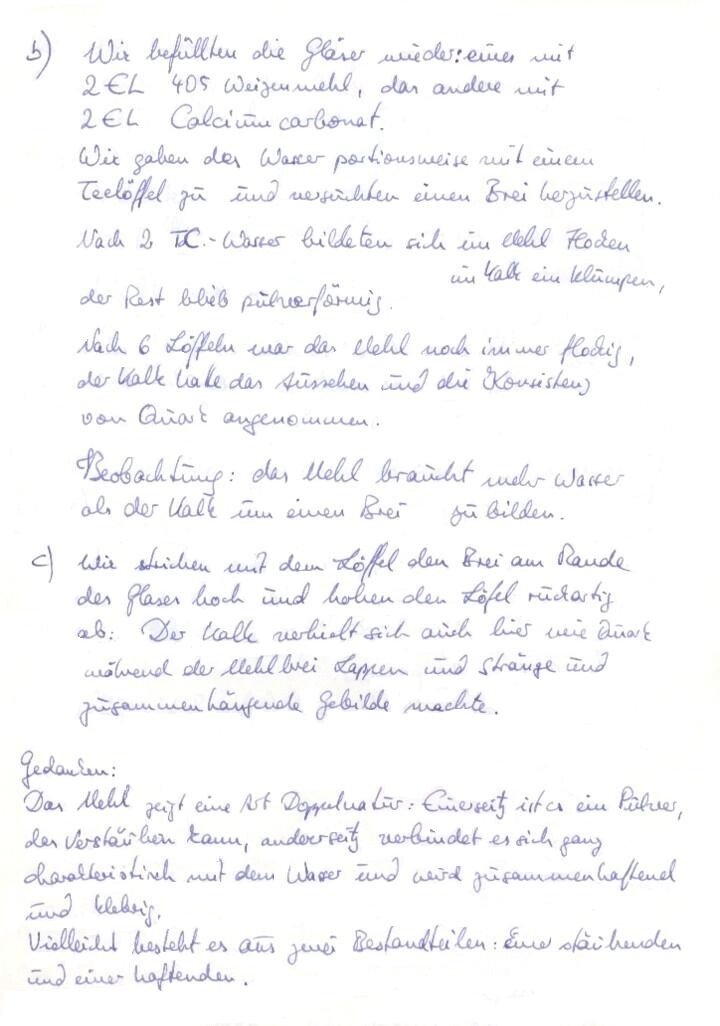 b) Wir befüllten die Gläser wieder: eines mit
2 EL 405 Weizenmehl, das andere mit
2 EL Calciumcarbonat.
Wir gaben das Wasser portionsweise mit einem
Teelöffel zu und versuchten einen Brei herzustellen.
Nach 2 TL.-Wasser bildeten sich im Mehl Flocken
im Kalk ein Klumpen,
der Rest blieb pulverförmig.
Nach 6 Löffeln war das Mehl noch immer flockig,
der Kalk hatte das Aussehen und die Konsistenz
von Quark angenommen.
Beobachtung: das Mehl braucht mehr Wasser
als der Kalk um einen Brei zu bilden.
c) Wir strichen mit dem Löffel den Brei am Rande
des Glases hoch und hoben den Löfel ruckartig
ab: Der Kalk verhielt sich auch hier wie Quark
während der Mehlbrei Lappen und Stränge und
zusammenhängende Gebilde machte.
Gedanken:
Das Mehl zeigt eine Art Doppelnatur: Einerseits ist es ein Pulver,
das verstäuben kann, anderseits verbindet es sich ganz
charakteristisch mit dem Wasser und wird zusammenhaftend
und klebrig.
Vielleicht besteht es aus zwei Bestandteilen: Einer stäubenden
und einer haftenden.